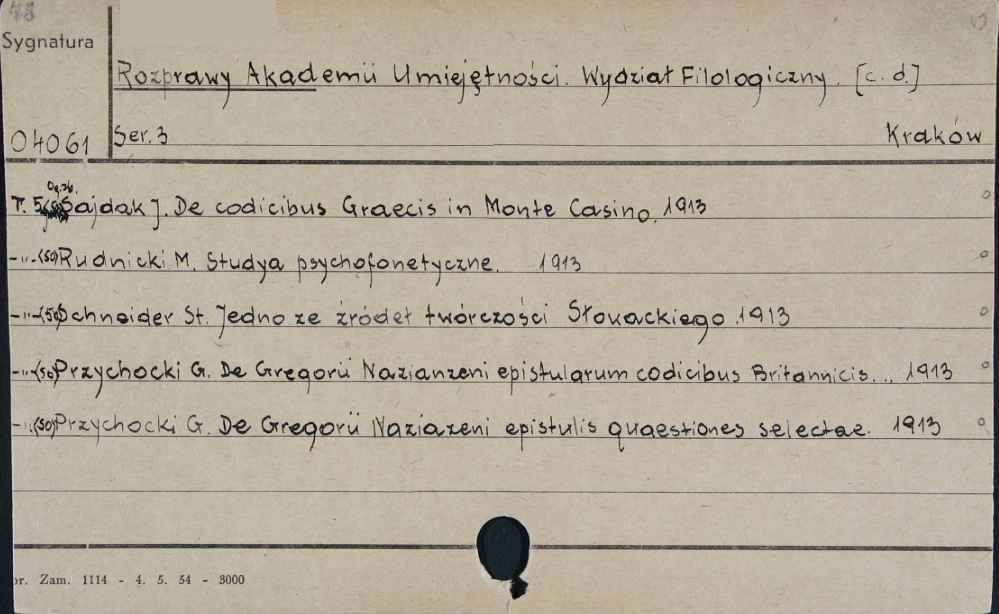 48
Sygnatura
Rozprawy Akademii Umiejętności. Wydział Filologiczny. [c. d.]
04061 Ser. 3 Kraków
T. 5 Sajdak J. De codicibus Graecis in Monte Casino. 1913
-"- (50) Rudnicki M. Studya psychofonetyczne. 1913
-"- (50) Schneider St. Jedno ze źródeł twórczości Słowackiego. 1913
-"- (50) Przychocki G. De Gregorii Nazianzeni epistularum codicibus Britannicis... 1913
-"- (50) Przychocki G. De Gregorii Naziazeni epistulis quaestiones selectae. 1913
or. Zam. 1114 - 4. 5. 54 - 3000